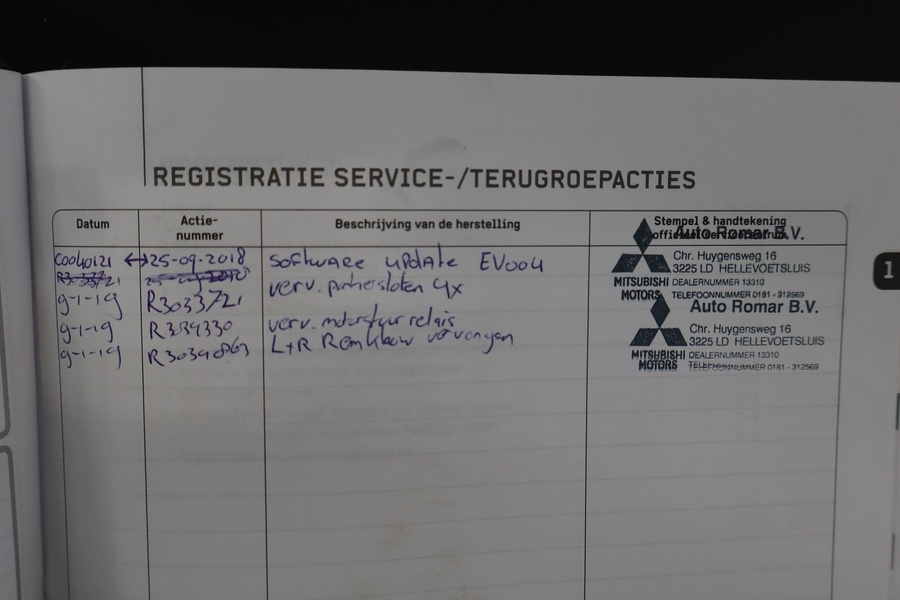 REGISTRATIE SERVICE-/TERUGROEPACTIES
Datum
Actie-
nummer
Beschrijving van de herstelling
Stempel & handtekening
officieel servicecentrum
C0040121 ↔ 25-09-2018 software update EV004
9-1-19 R3033721 verv. portiersloten 4x
9-1-19 verv. motorstuur relais
9-1-19 L+R Remklauw vervangen
Auto Romar B.V.
Chr. Huygensweg 16
3225 LD HELLEVOETSLUIS
MITSUBISHI DEALERNUMMER 13310
MOTORS TELEFOONNUMMER 0181 - 312569
Auto Romar B.V.
Chr. Huygensweg 16
3225 LD HELLEVOETSLUIS
MITSUBISHI DEALERNUMMER 13310
MOTORS TELEFOONNUMMER 0181 - 312569
1